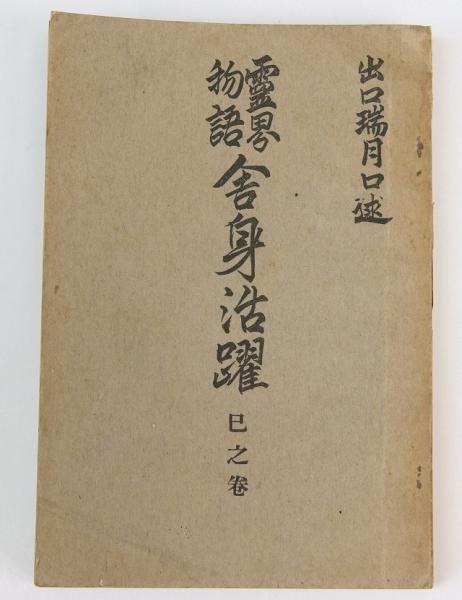 出口瑞月口述
靈界物語 舎身活躍 巳之卷